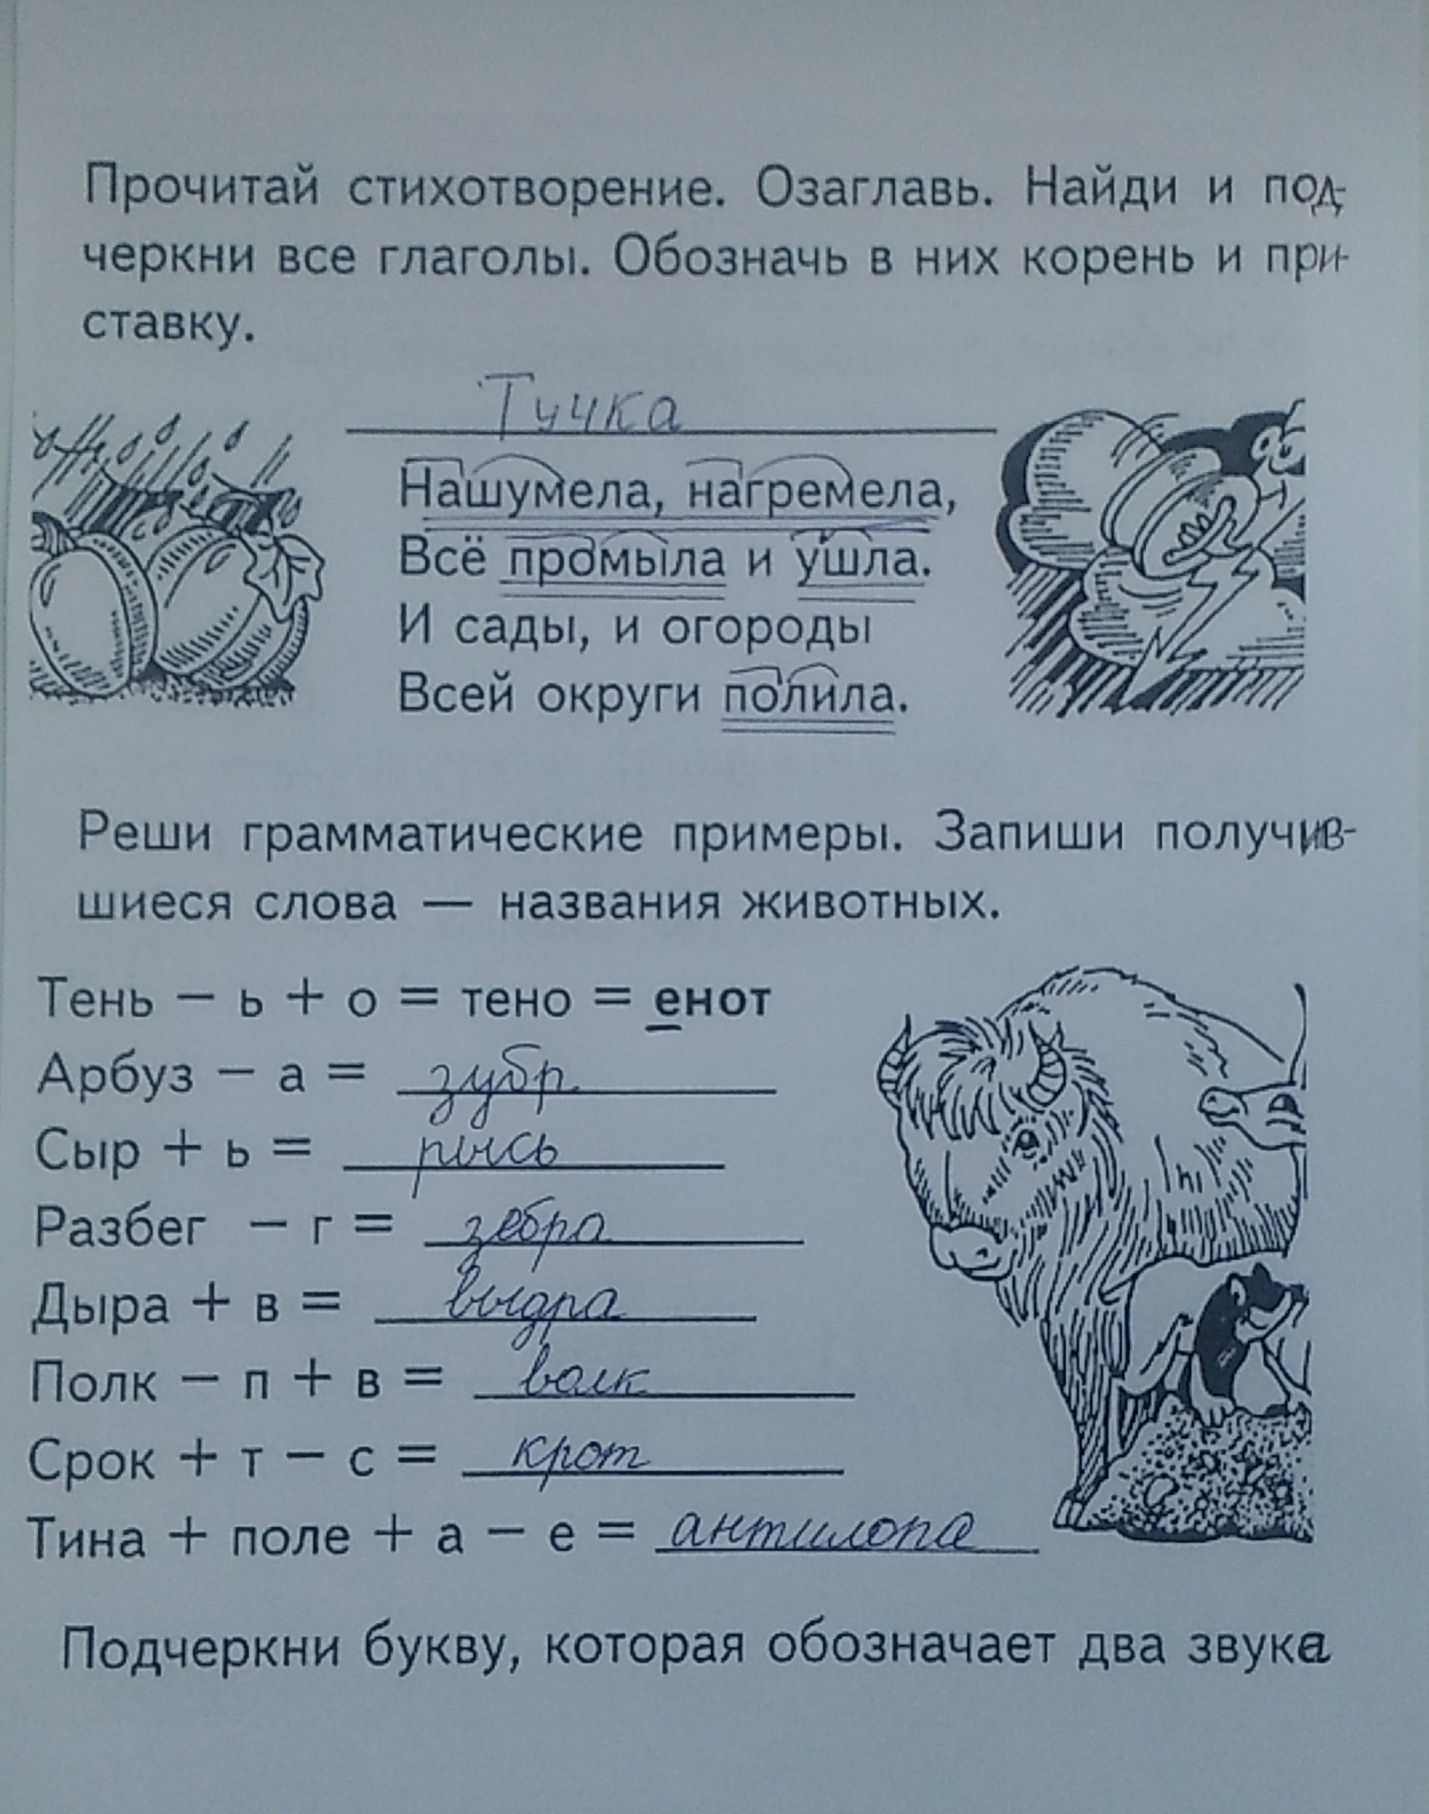 Прочитай стихотворение. Озаглавь. Найди и под-
черкни все глаголы. Обозначь в них корень и при-
ставку.
Тучка
Нашумела, нагремела,
Всё промыла и ушла.
И сады, и огороды
Всей округи полила.
Реши грамматические примеры. Запиши получив-
шиеся слова — названия животных.
Тень − ь + о = тено = енот
Арбуз − а = зубр
Сыр + ь = рысь
Разбег − г = зебра
Дыра + в = выдра
Полк − п + в = волк
Срок + т − с = крот
Тина + поле + а − е = антилопа
Подчеркни букву, которая обозначает два звука